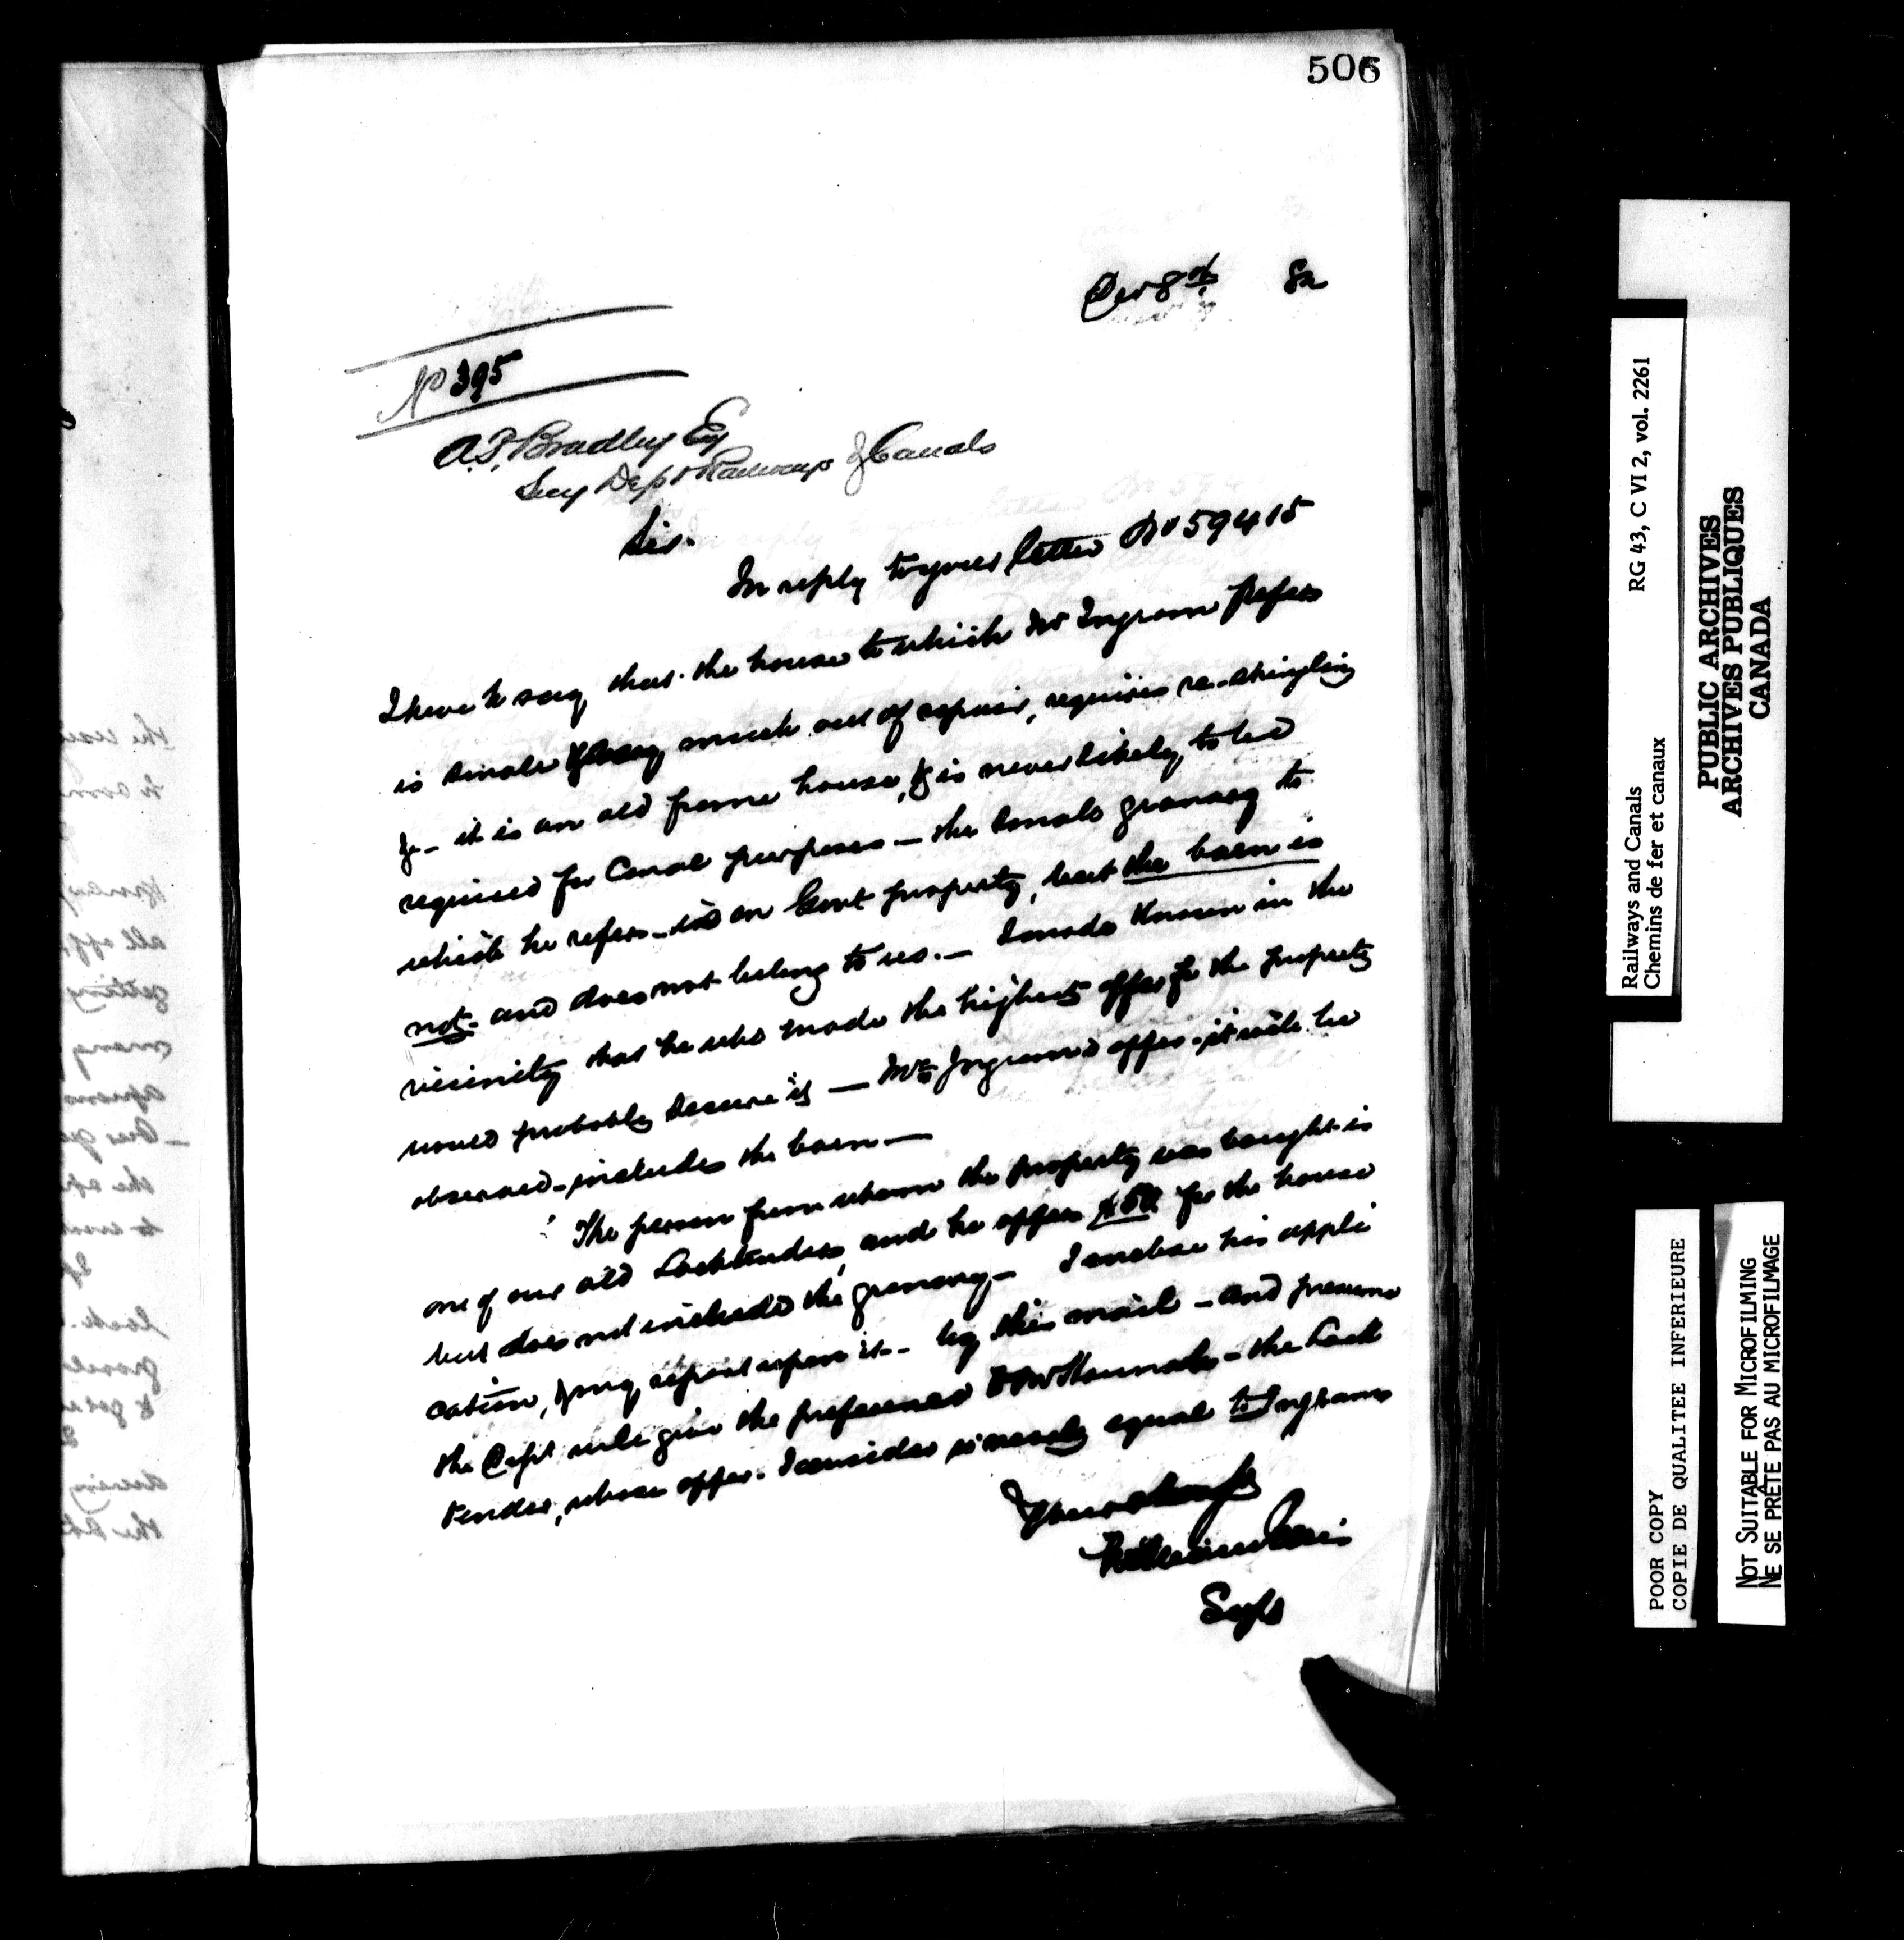 506
Decr 8th 82
No 395
A.P. Bradley Esq
Secy Dept Railways & Canals
Sir.
In reply to your letter No 59415
I have to say that the house to which Mr Ingram refers
is small & very much out of repair, requires re-shingling
&c - it is an old frame house, & is never likely to be
required for Canal purposes - the small granary to
which he refers - is on Govt property, but the barn is
not - and does not belong to us. - I made known in the
vicinity that he who made the highest offer for the property
would probably secure it — Mr Ingram's offer - it will be
observed - includes the barn —
The person from whom the property was bought is
one of our old Locktenders, and he offers $50. for the house
but does not include the granary - I enclose his appli
cation, & my report upon it - by this mail - and presume
the Dept will give the preference to the Lock
tender, whose offer - I consider is nearly equal to Ingrams
Your obt Sert
Supt
Railways and Canals RG 43, C VI 2, vol. 2261
Chemins de fer et canaux
PUBLIC ARCHIVES
ARCHIVES PUBLIQUES
CANADA
POOR COPY
COPIE DE QUALITEE INFERIEURE
NOT SUITABLE FOR MICROFILMING
NE SE PRÊTE PAS AU MICROFILMAGE